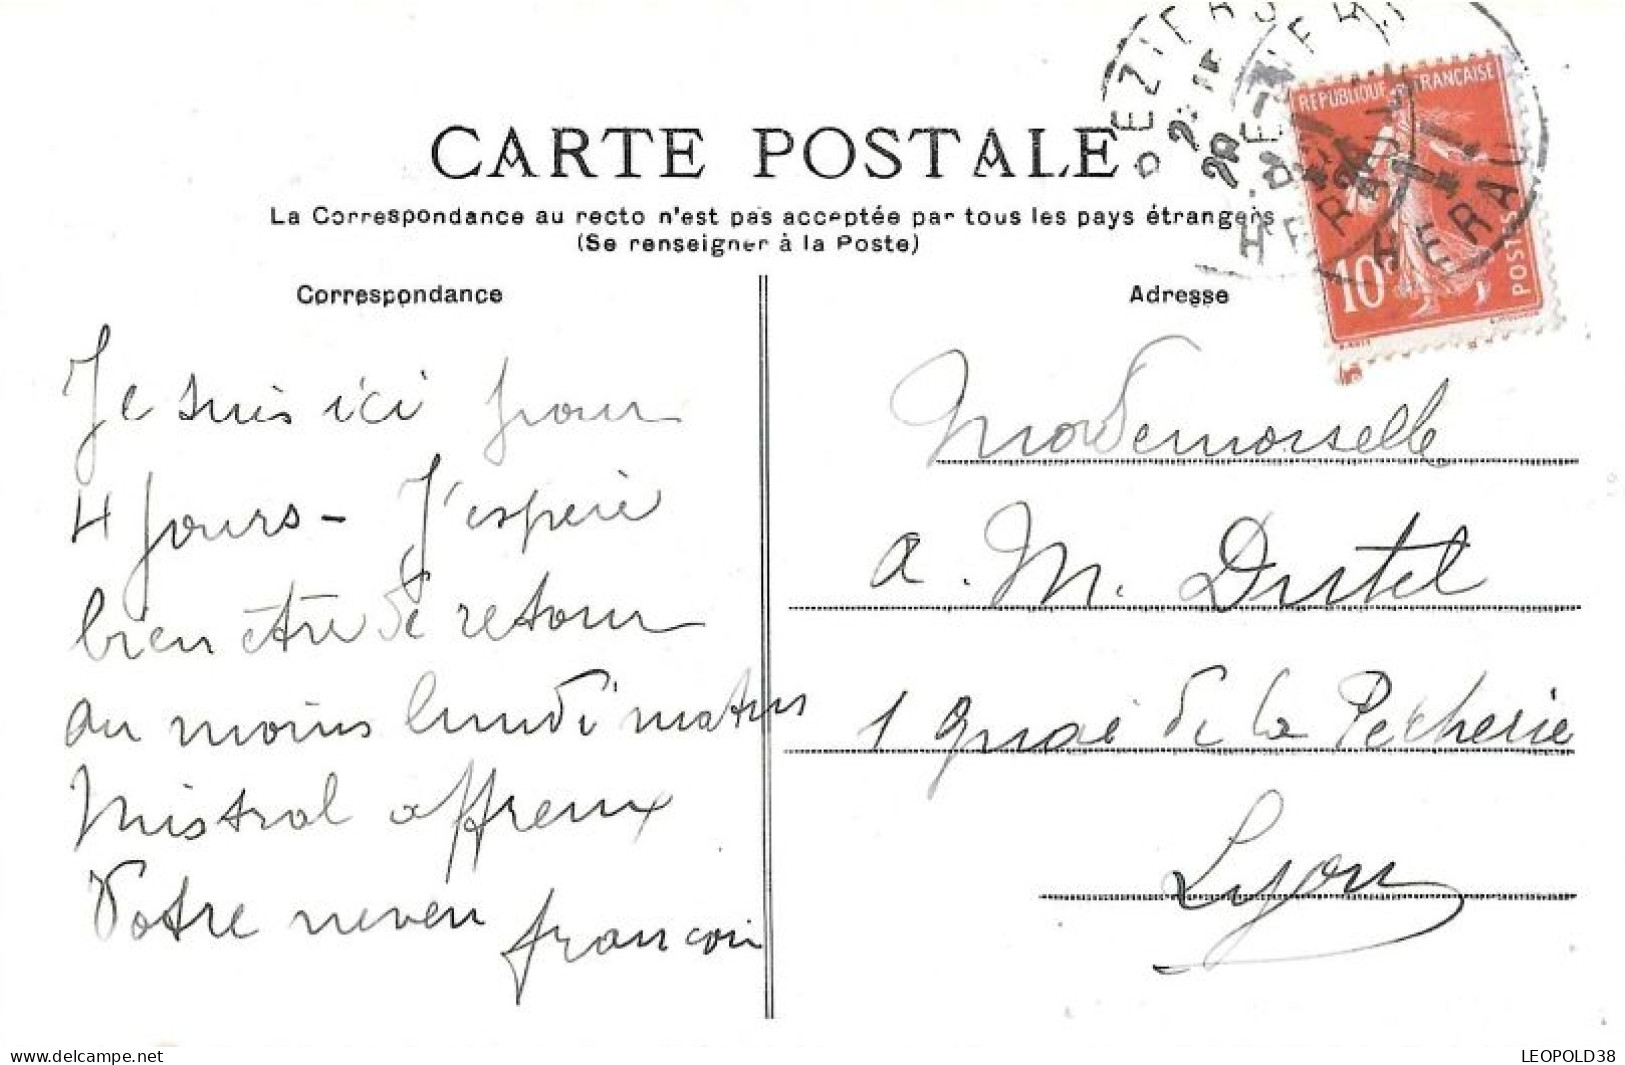 CARTE POSTALE
La Correspondance au recto n'est pas acceptée par tous les pays étrangers
(Se renseigner à la Poste)
Correspondance
Adresse
BEZIERS
HERAULT
REPUBLIQUE FRANÇAISE
POSTES
10c
Je suis ici pour
4 jours - J'espère
bien être de retour
au moins lundi matin
Mistral affreux
Votre neveu
françois
Mademoiselle
a. M. Dutel
1 Quai de la Pecherie
Lyon
www.delcampe.net
LEOPOLD38